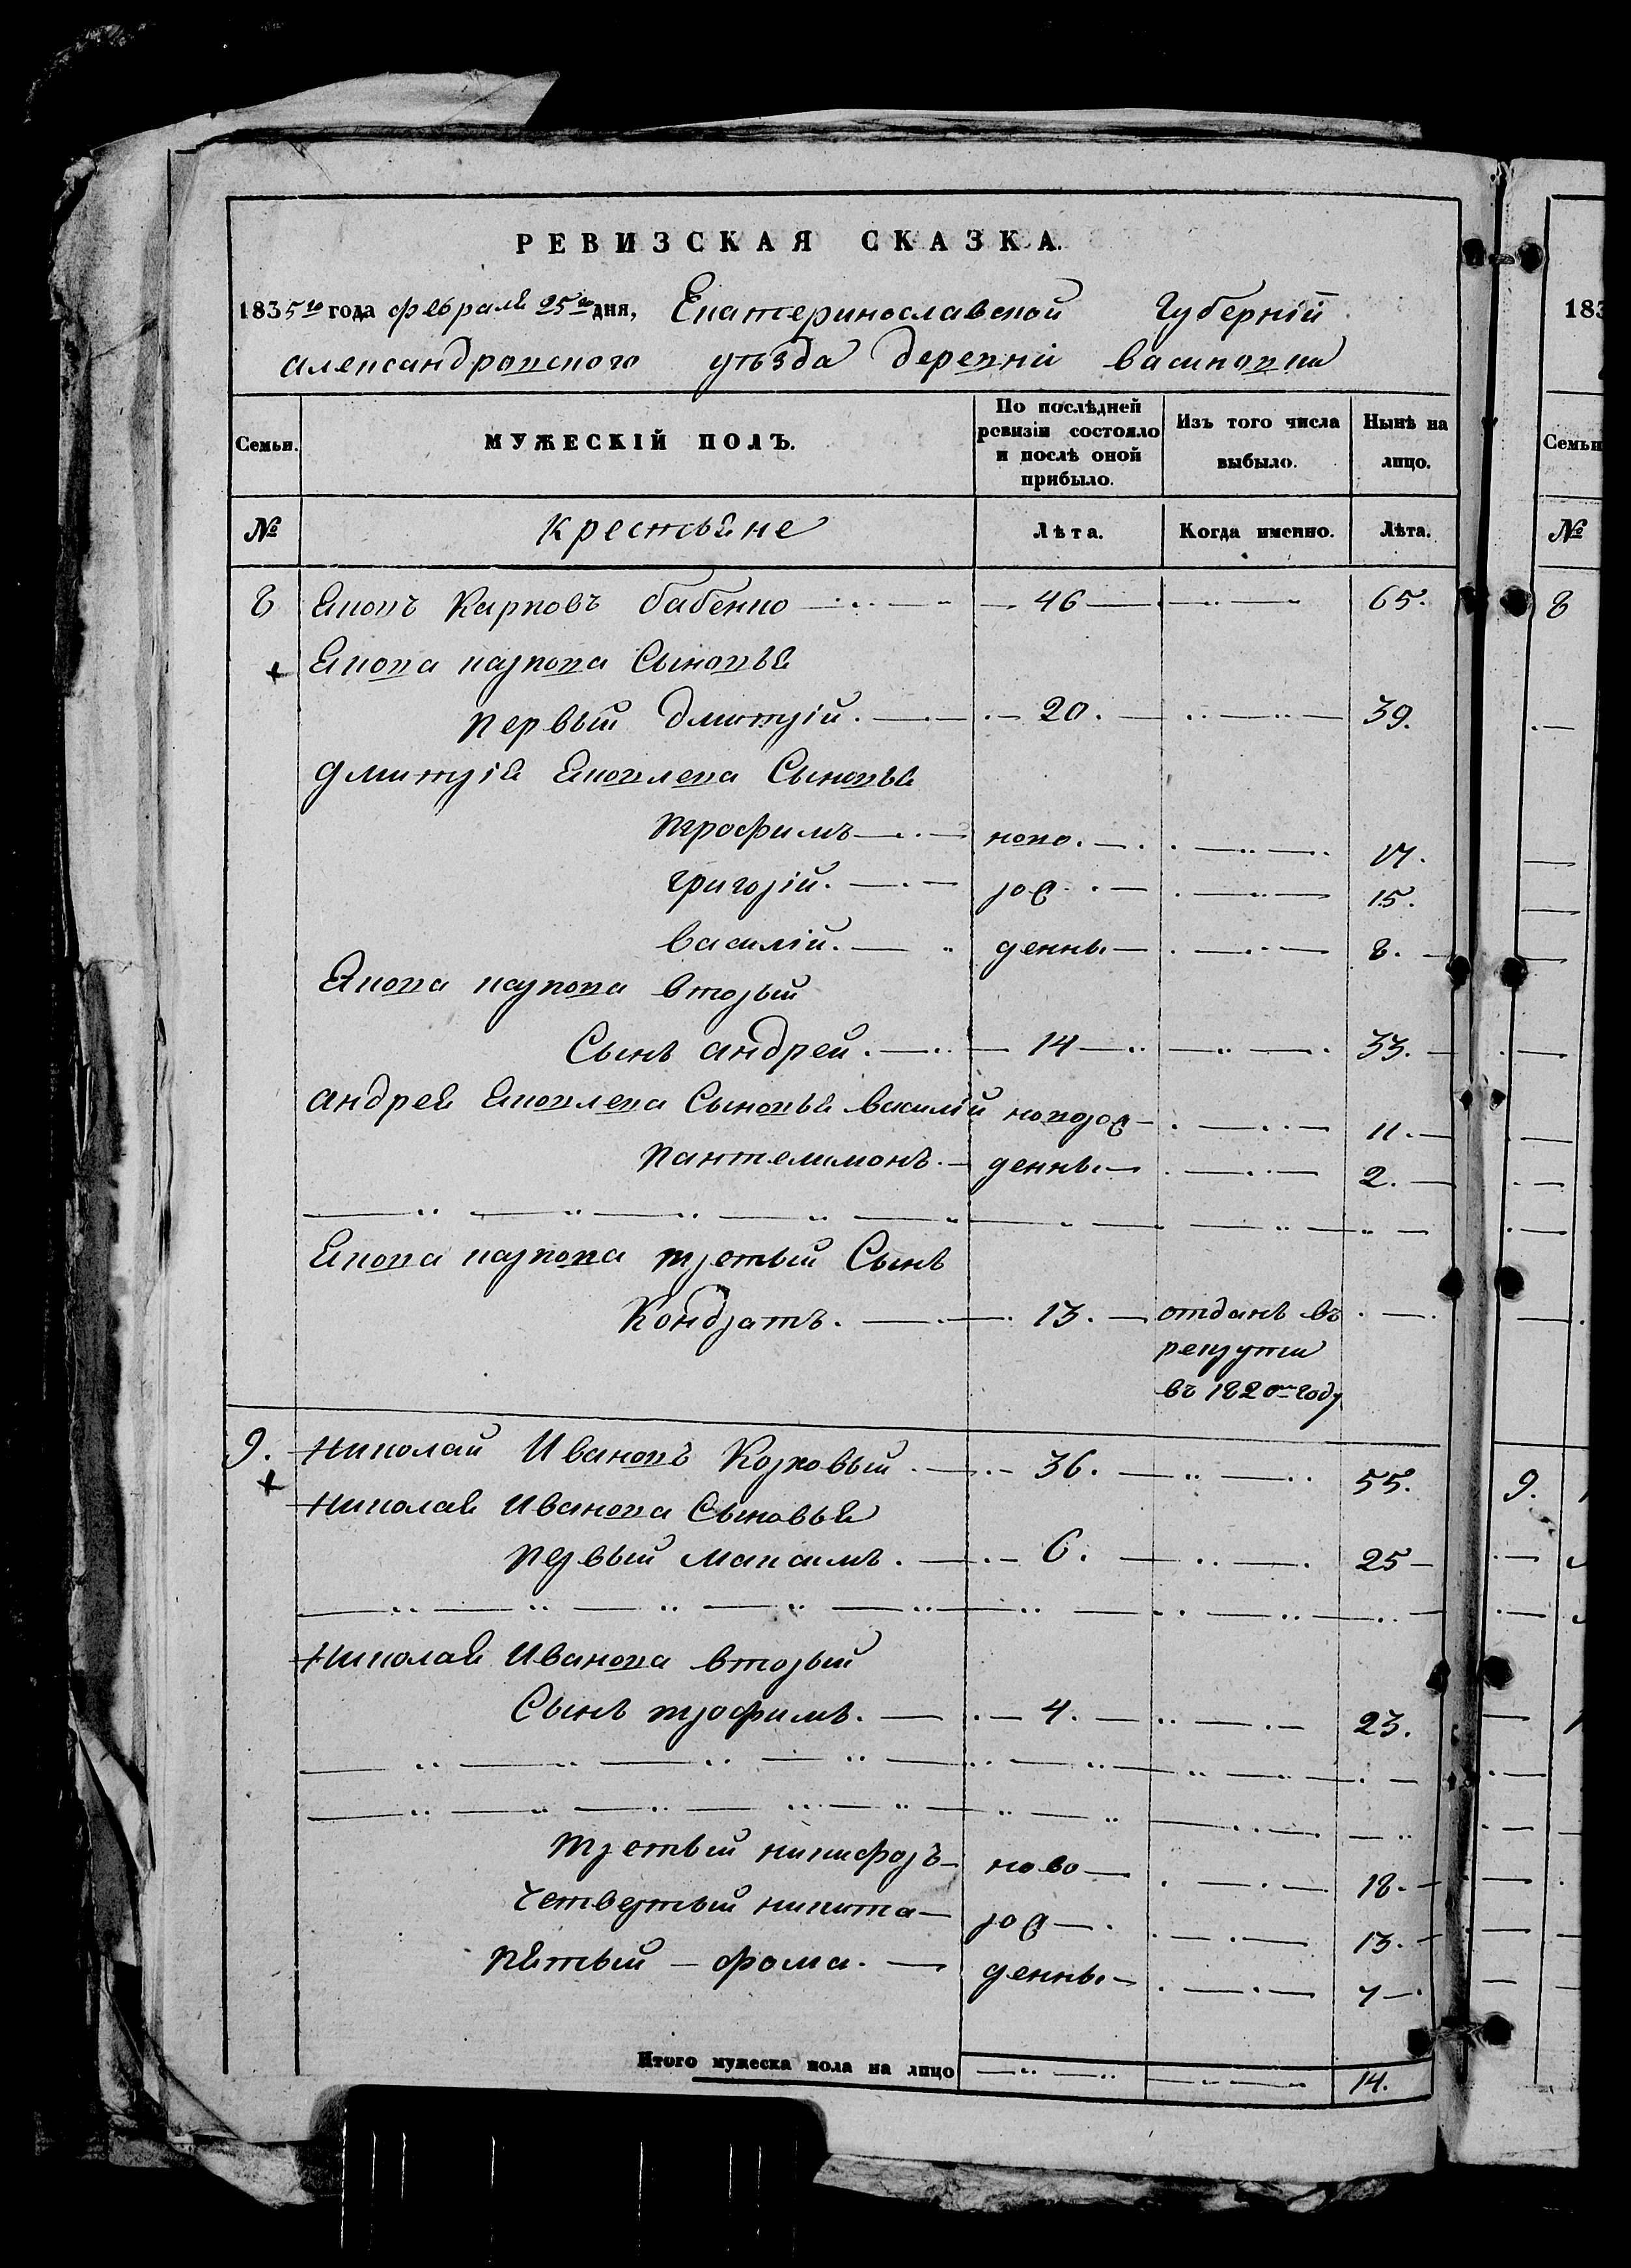 РЕВИЗСКАЯ СКАЗКА.
1835го года февраля 25го дня, Екатеринославской Губерніи
александровского уѣзда деревни васиновки
Семьи. МУЖЕСКІЙ ПОЛЪ. По послѣдней ревизіи состояло и послѣ оной прибыло. Изъ того числа выбыло. Нынѣ на лицо.
№ крестьяне Лѣта. Когда именно. Лѣта.
8 Яковъ Карповъ бабенко 46 65.
Якова карпова Сыновья
первый дмитрій. 20. 39.
дмитрія Яковлева Сыновья
трофимъ ново. 17.
григорій. рож 15.
василій. денны 8.
Якова карпова вторый
Сынъ андрей. 14 33.
андрея Яковлева Сыновья василій новорож 11.
пантелимонъ. денны. 2.
Якова карпова третьий Сынъ
Кондратъ. 13. отданъ въ
рекруты
въ 1820м году
9. николай Ивановъ Коржовый. 36. 55.
николая Иванова Сыновья
первый максимъ. 6. 25
николая Иванова вторый
Сынъ трофимъ. 4. 23.
третьий никифоръ ново 18.
Четвертый никита рож 13.
пятый фома. денны. 7
Итого мужеска пола на лицо 14.
183
Семьи
№
8
9.